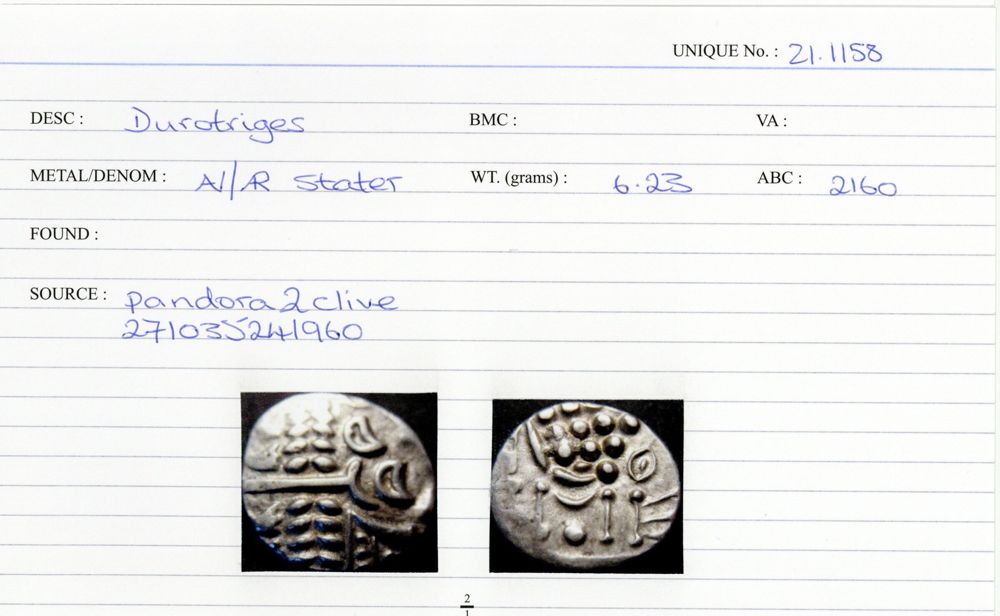 UNIQUE No. : 21.1158
DESC : Durotriges BMC : VA :
METAL/DENOM : AV/AR Stater WT. (grams) : 6.23 ABC : 2160
FOUND :
SOURCE : pandora2clive
271035241960
2
1